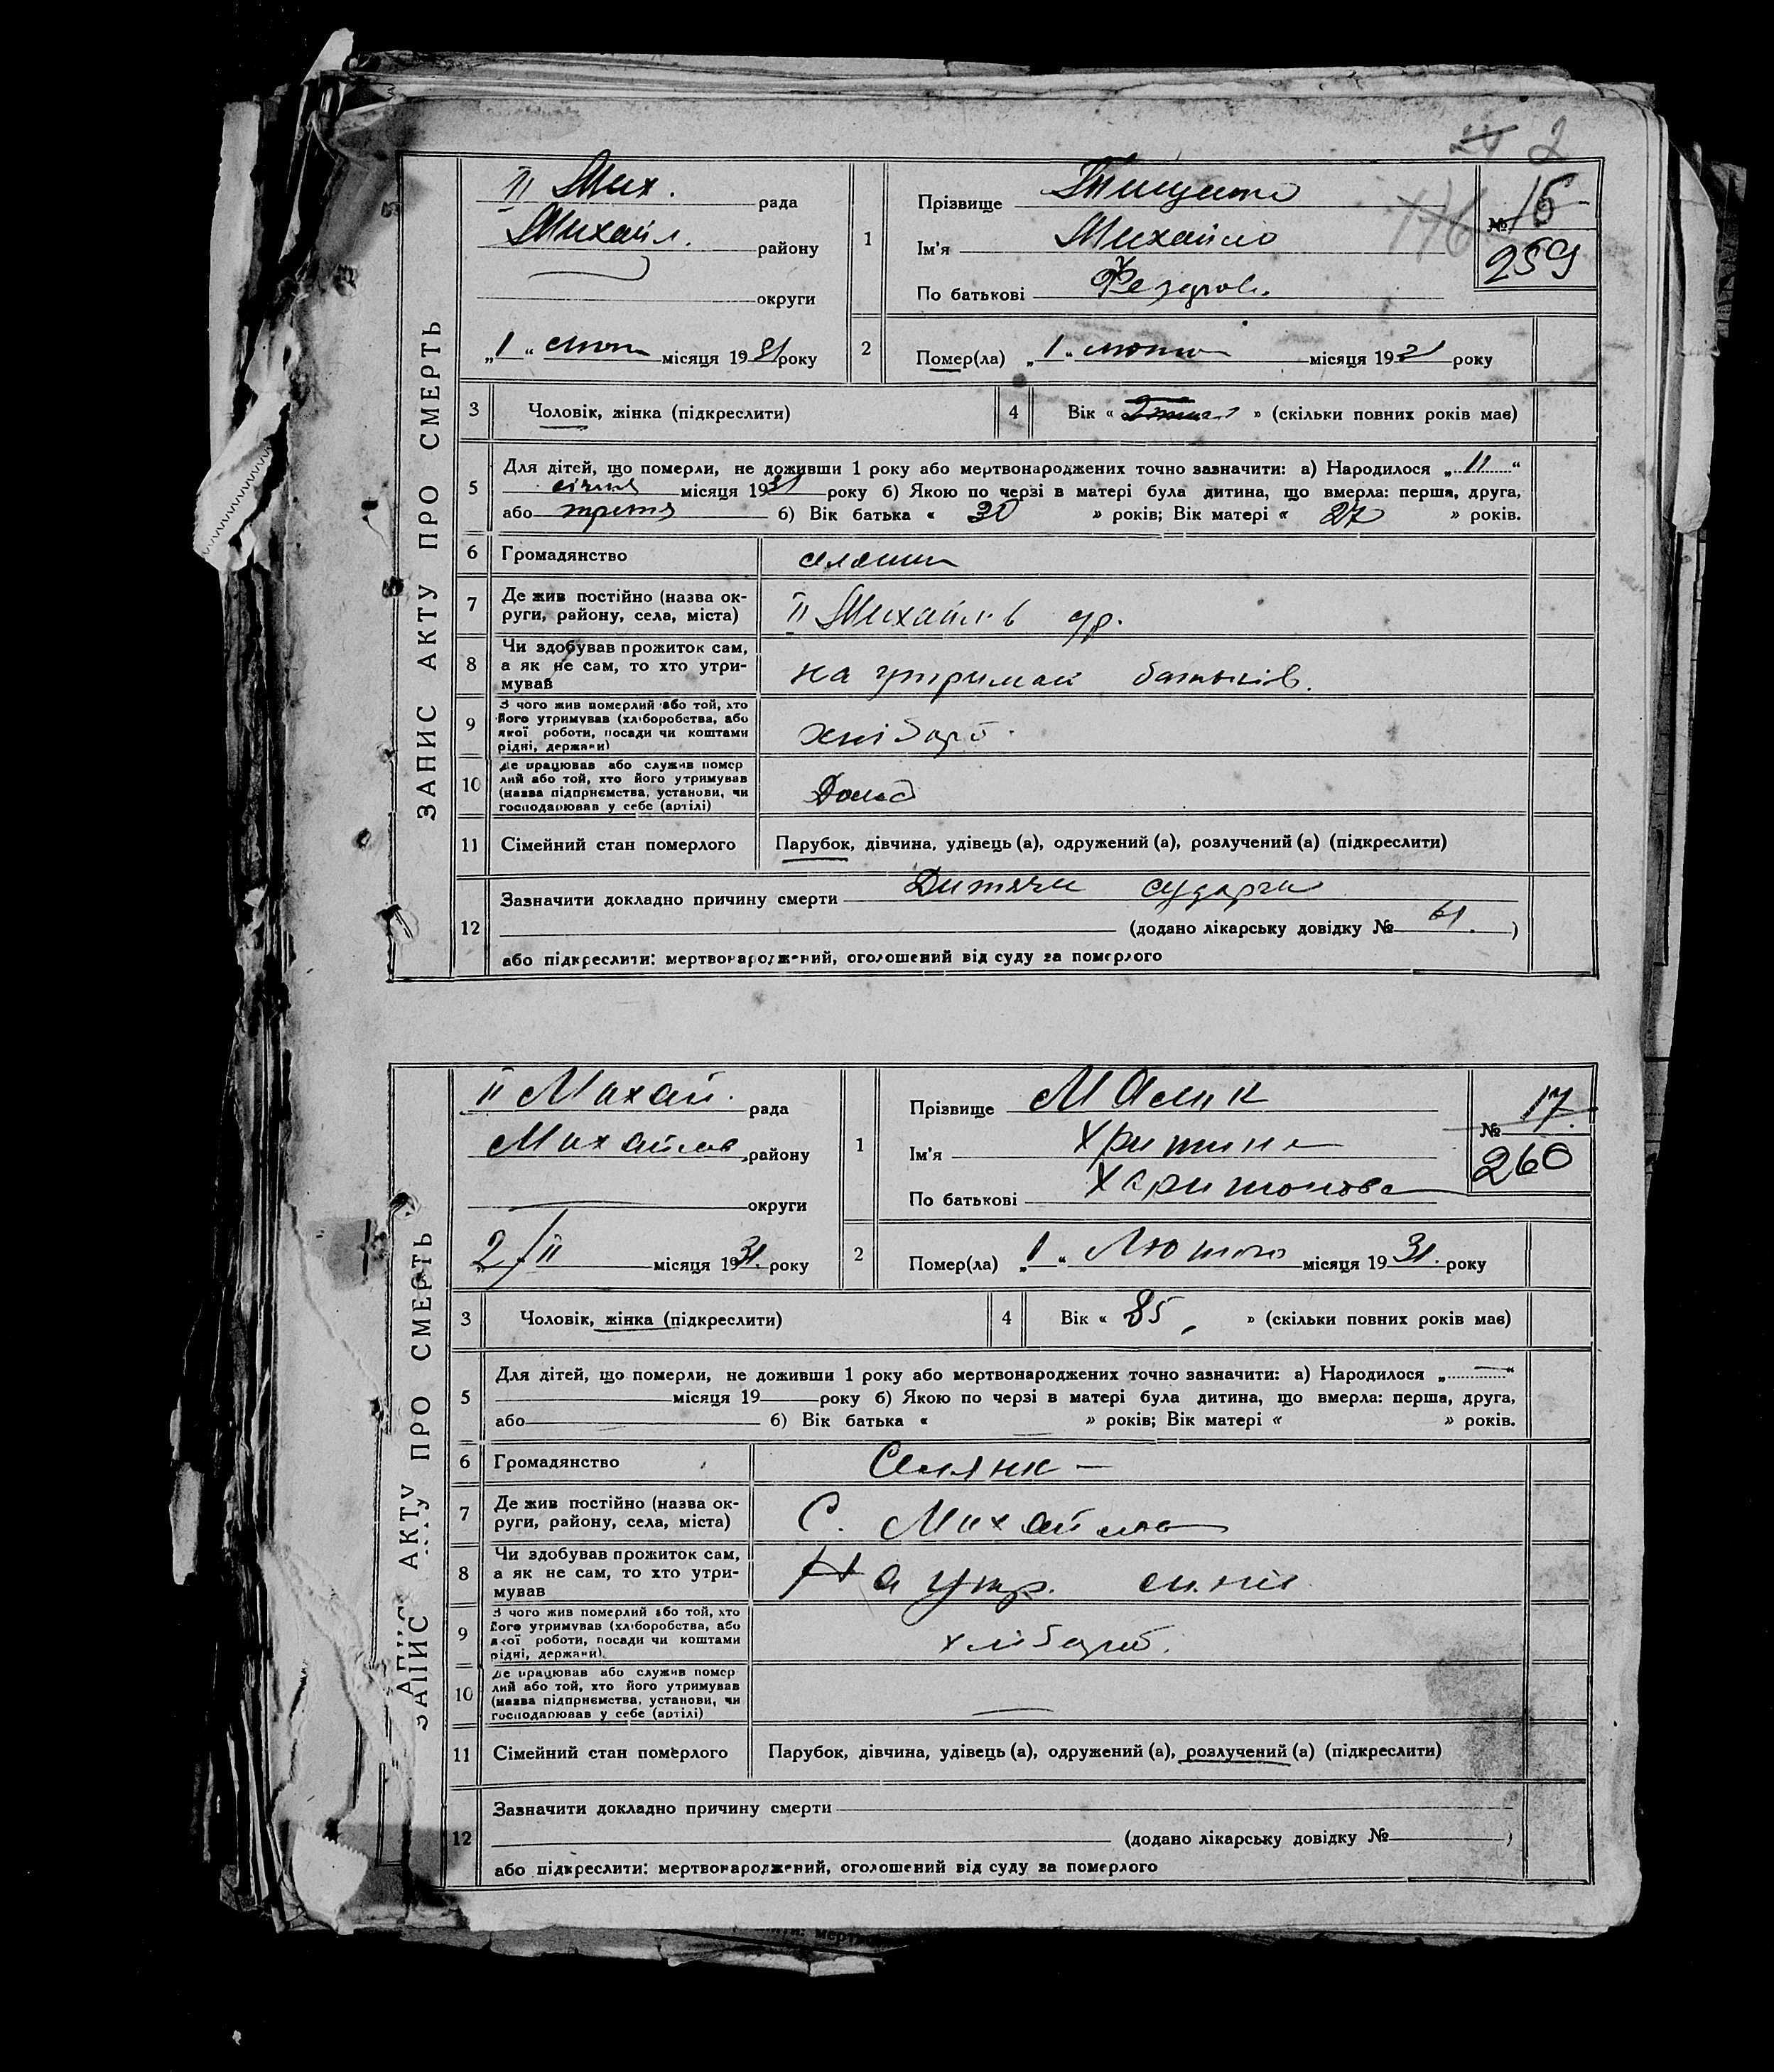 2
ЗАПИС АКТУ ПРО СМЕРТЬ
II Мих. рада
Михайл. району
округи
„1“ лют місяця 1931 року
1
Прізвище Тищенко
Ім’я Михайло
По батькові Федоров.
№ 16
259
2
Помер(ла) „1“ лютого місяця 1931 року
3 Чоловік, жінка (підкреслити)
4 Вік « » (скільки повних років має)
5 Для дітей, що померли, не доживши 1 року або мертвонароджених точно зазначити: а) Народилося „11“
січня місяця 1931 року б) Якою по черзі в матері була дитина, що вмерла: перша, друга,
або третя б) Вік батька « 30 » років; Вік матері « 27 » років.
6 Громадянство селянин
7 Де жив постійно (назва ок-
руги, району, села, міста)
II Михайлів
8 Чи здобував прожиток сам,
а як не сам, то хто утри-
мував
на утриман батьків.
9 З чого жив померлий або той, хто
його утримував (хліборобства, або
якої роботи, посади чи коштами
рідні, держави)
хлібороб.
10 Де працював або служив помер
лий або той, хто його утримував
(назва підприємства, установи, чи
господарював у себе (артілі)
11 Сімейний стан померлого Парубок, дівчина, удівець (а), одружений (а), розлучений (а) (підкреслити)
12 Зазначити докладно причину смерти Дитячи судорги
(додано лікарську довідку № 61.)
або підкреслити: мертвонароджений, оголошений від суду за померлого
ЗАПИС АКТУ ПРО СМЕРТЬ
II Михай. рада
Михайлов. району
округи
2/II місяця 1931. року
1
Прізвище Малик
Ім’я Христина
По батькові Харитонова
№ 17.
260
2
Помер(ла) „1“ Лютого місяця 1931. року
3 Чоловік, жінка (підкреслити)
4 Вік « 85, » (скільки повних років має)
5 Для дітей, що померли, не доживши 1 року або мертвонароджених точно зазначити: а) Народилося „—“
місяця 19 року б) Якою по черзі в матері була дитина, що вмерла: перша, друга,
або б) Вік батька « » років; Вік матері « » років.
6 Громадянство Селянк –
7 Де жив постійно (назва ок-
руги, району, села, міста)
С. Михайловка
8 Чи здобував прожиток сам,
а як не сам, то хто утри-
мував
На утр. сина
9 З чого жив померлий або той, хто
його утримував (хліборобства, або
якої роботи, посади чи коштами
рідні, держави)
хлібороб.
10 Де працював або служив помер
лий або той, хто його утримував
(назва підприємства, установи, чи
господарював у себе (артілі)
—
11 Сімейний стан померлого Парубок, дівчина, удівець (а), одружений (а), розлучений (а) (підкреслити)
12 Зазначити докладно причину смерти
(додано лікарську довідку № )
або підкреслити: мертвонароджений, оголошений від суду за померлого